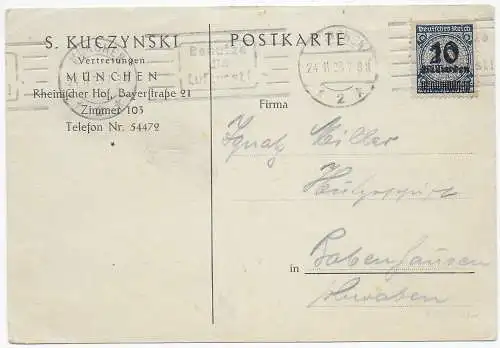 S. KUCZYNSKI
Vertretungen
MÜNCHEN
Rheinischer Hof, Bayerstraße 21
Zimmer 103
Telefon Nr. 54472
POSTKARTE
MÜNCHEN
Benutze
die
Luftpost!
24.11.23
2
Deutsches Reich
10
Milliarden
Firma
Ignatz Miller
in
Babenhausen
Schwaben